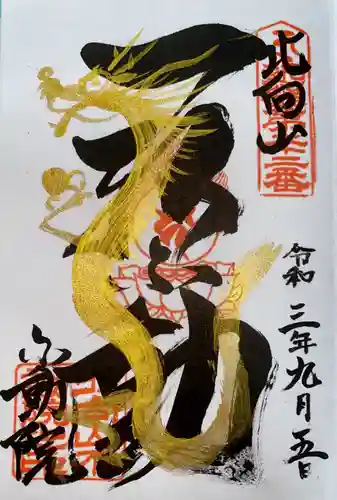 北向山
二番
不動
令和三年九月五日
不動院